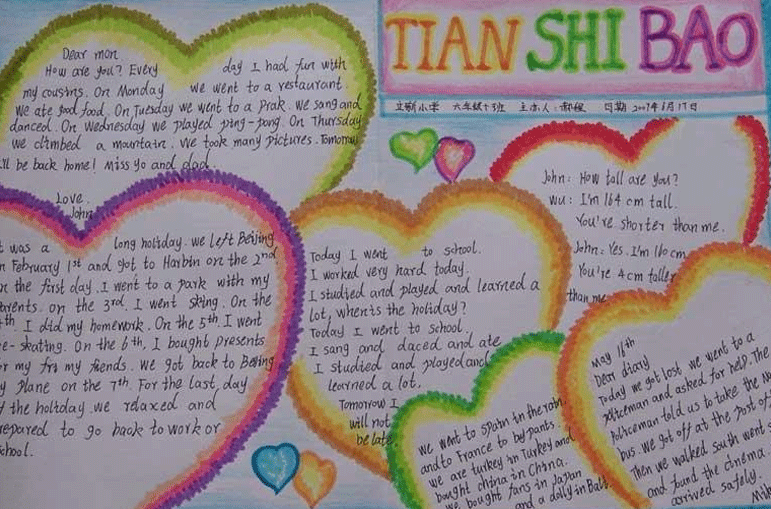 TIAN SHI BAO
立新小学 六年级十班 主办人:郝程 日期 2009年6月17日
Dear mon
How are you? Every day I had fun with
my cousins. On Monday we went to a restaurant.
We ate good food. On Tuesday we went to a prak. We sang and
danced. On Wednesday we played ping-pong. On Thursday
we climbed a mountain. We took many pictures. Tomorrow
I'll be back home! Miss yo and dad.
Love.
John
John: How tall are you?
wu: I'm 164 cm tall.
You're shorter than me.
John: Yes. I'm 160 cm
You're 4cm taller
than me
t was a long holiday. we left Beijing
n February 1st and got to Harbin on the 2nd
n the first day. I went to a park with my
arents. on the 3rd. I went skiing. On the
th. I did my homework. On the 5th. I went
e-skating. On the 6th. I bought presents
or my frs my friends. we got back to Beijing
y plane on the 7th. For the last day
f the holtday we relaxed and
repared to go back to work or
chool.
Today I went to school.
I worked very hard today.
I studied and played and learned a
lot, when's the holiday?
Today I went to school.
I sang and daced and ate
I studied and played and
learned a lot.
Tomorrow I
will not
be late.
We went to Spain in the rain
and to France to buy pants.
We are turkey in Turkey and
bought china in China.
We bought fans in Japan
and a dolly in Bali.
May 16th
Dear diary
Today we got lost. we went to a
policeman and asked for help. The
policeman told us to take the No
bus. We got off at the post of
Then we walked south went s
and found the cinema.
arrived safely.
Mik